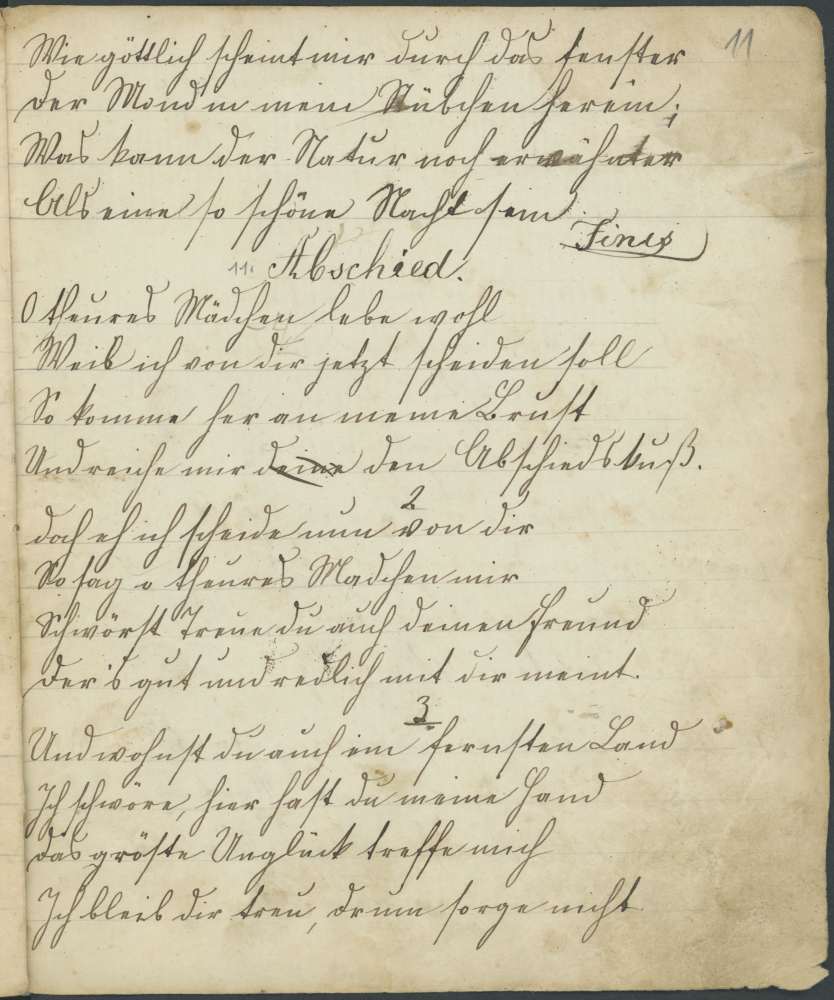 11
Wie göttlich scheint mir durch das fenster
der Mond in mein Stübchen herein;
Was kann der Natur noch erwähnter
Als eine so schöne Nacht sein.
Finis
11. Abschied.
O theures Mädchen lebe wohl
Weil ich von dir jetzt scheiden soll
So komme her an meine Brust
Und reiche mir deine den Abschiedskuß.
2
doch eh ich scheide nun von dir
So sag o theures Madchen mir
Schwörst Treue du auch deinen freund
der's gut und redlich mit dir meint.
3
Und wohnst du auch im fernsten Land
Ich schwöre, hier hast du meine Hand
das gröste Unglück treffe mich
Ich bleib dir treu, drum sorge nicht